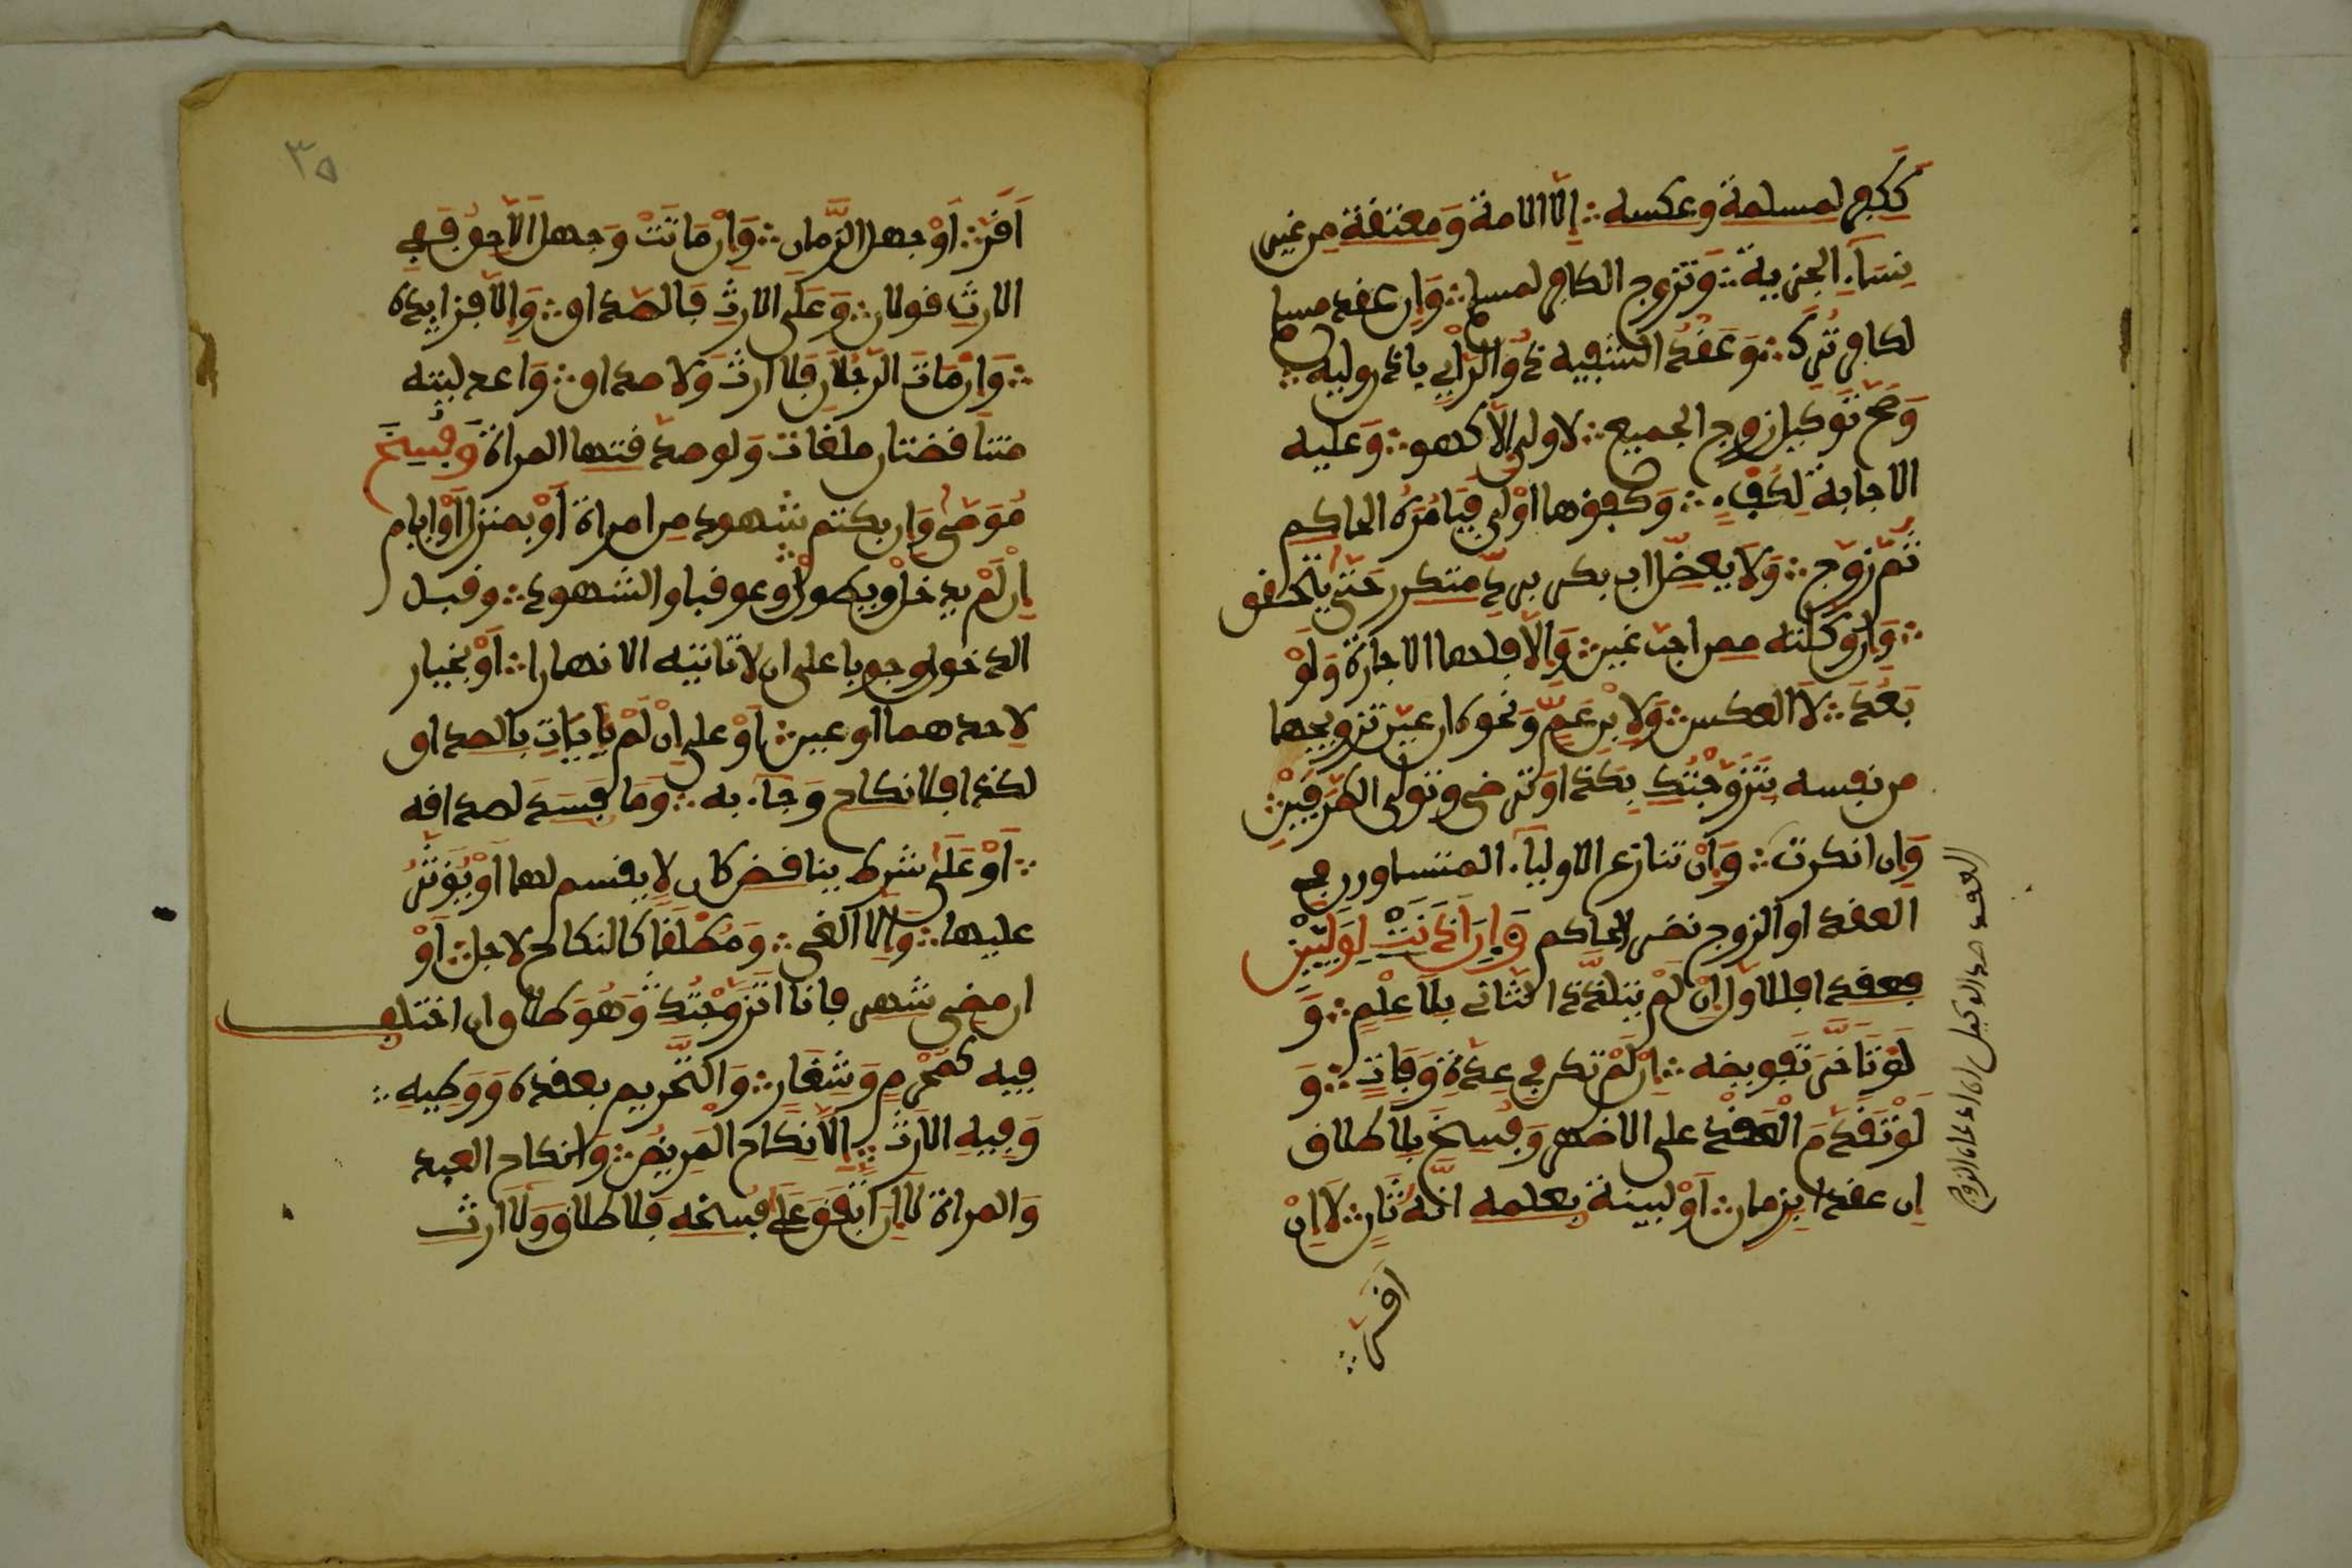 كَكفر لمسلمة وعكسه ∴ إلا لامة وَمعتقة مِن غير
نِسَاء الجزية ∴ وَتزوج الكافر لمسلم ∴ وَإن عقد مسلم
لكافر تُرِك ∴ وَعَقدُ السفيه ذُو الرَّأيِ بإذن وليه ∴
وَصح تَوكيل زوج الجميع ∴ لا ولي إلا كهو ∴ وَعليه
الاجابة لِكُفء ∴ وَكفؤها اولى فيَامُرُه الحاكم
ثُمّ زوّج ∴ وَلَا يعضل اب بكر برد متكرر حَتى يتحقق
∴ وَإن وَكلته ممن احب عَين ∴ وَإلا فلها الاجازة وَلَوْ
بَعُدَ ∴ لا العكس ∴ وَلِابن عَمّ وَنحوه ان عين تزويجها
من نفسه بِتَزَوَّجْتُكِ بِكَذا وَترضى وتولى الطرفين ∴
وَإن انكرت ∴ وَإنْ تنازع الاوليَاء المتساوون في
العقد او الزوج نظر الحاكم وَإن أَذِنَتْ لِوَلِيَّيْنِ
فعقدا فللاول إنْ لَمْ يتلذذ الثاني بِلَا عِلْمٍ ∴ وَ
لَوْ تَاخَّرَ تَفويضه ∴ إنْ لَمْ تكن في عِدّةِ وَفَاتٍ ∴ وَ
لَوْ تَقَدَّمَ الْعَقْد على الاظهر وَفُسِخَ بِلَا طلاق
إن عقدا بزمن ∴ أوْ لبينة بعلمه انّهُ ثَانٍ ∴ لَا إنْ
اقر ∴
العقد ضد الوكيل ان ادعاه الزوج
٣٥
اَقَرّ ∴ أَوْ جهل الزّمان ∴ وَإن مَاتَتْ وَجهل الأحق فَفِي
الارث قولان ∴ وَعَلَى الارث فَالصداق ∴ وَإلا فزايده
∴ وَإن مَاتَ الرَّجُلَانِ فَلا ارثَ وَلا صداق ∴ وَاعدلية
متناقضتان ملغات وَلو صدقتها المراة وَفُسِخَ
مُوصًى وَإن بكتم شهود مِن امراة أوْ بمنزل أَوْ ايام
إنْ لَمْ يدخل ويطل وَعوقبا والشهود ∴ وقبل
الدخول وجوبا على ان لا تاتيه الا نهارا ∴ أَوْ بخيار
لاحدهما او غير ∴ أَوْ على إنْ لَمْ يَات بالصداق
لكذا فلا نكاح وَجَاء به ∴ وَمَا فَسَدَ لصداقه
∴ أوْ عَلَى شرط يناقض كان لا يقسم لها أَوْ يُؤثر
عليها ∴ وَالا الغي ∴ وَمُطْلَقًا كالنكاح لاجل ∴ أَوْ
ان مضى شهر فانا اتزوجُكِ وَهُوَ طلاق ان اختلف
فيه كمحرمٍ وَشِغَارٍ ∴ وَالتّحريم بعقده وَوَطيه ∴
وَفِيهِ الارث ∴ إلا نِكاح المريض ∴ وَانكاح العبد
وَالمراة لا إن اتُّفِقَ عَلَى فسخه فلا طلاق وَلا ارث